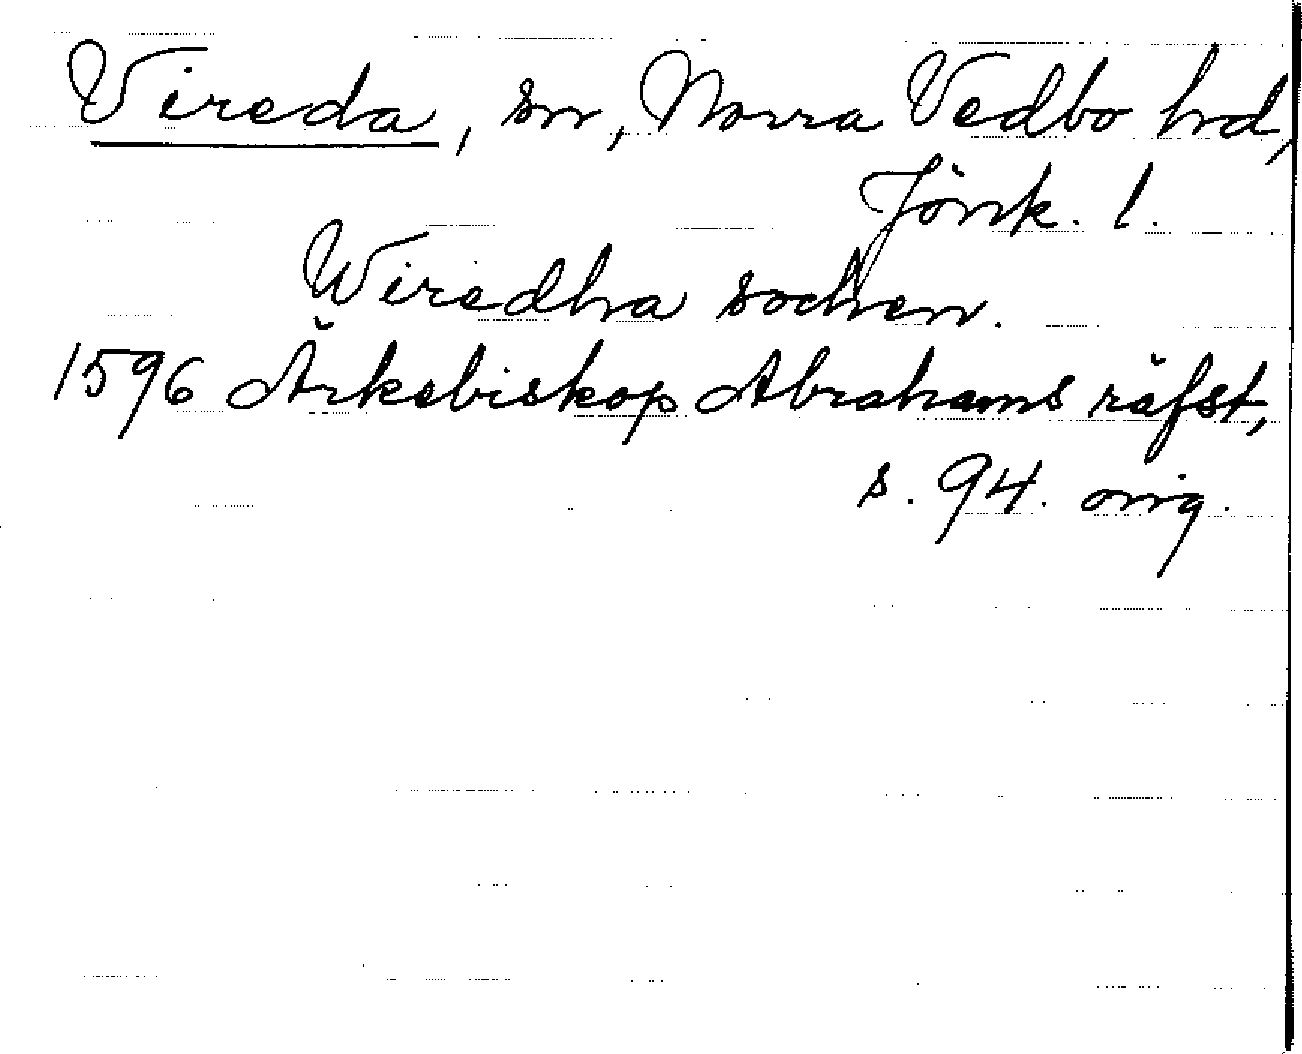 Vireda, sn, Norra Vedbo hrd,
Jönk. l.
Wiredha sochen.
1596 Ärkebiskop Abrahams räfst,
s. 94. orig.